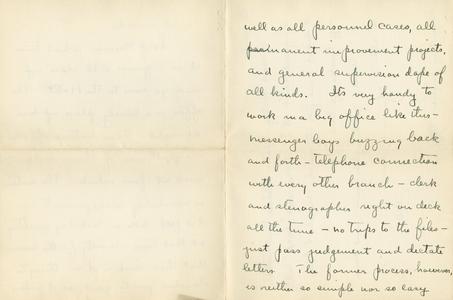 well as all personnel cases, all
permanent improvement projects,
and general supervision dope of
all kinds. Its very handy to
work in a big office like this -
messenger boys buzzing back
and forth - telephone connection
with every other branch - clerk
and stenographer right on deck
all the time - no trips to the files -
just pass judgement and dictate
letters. The former process, however,
is neither so simple nor so easy